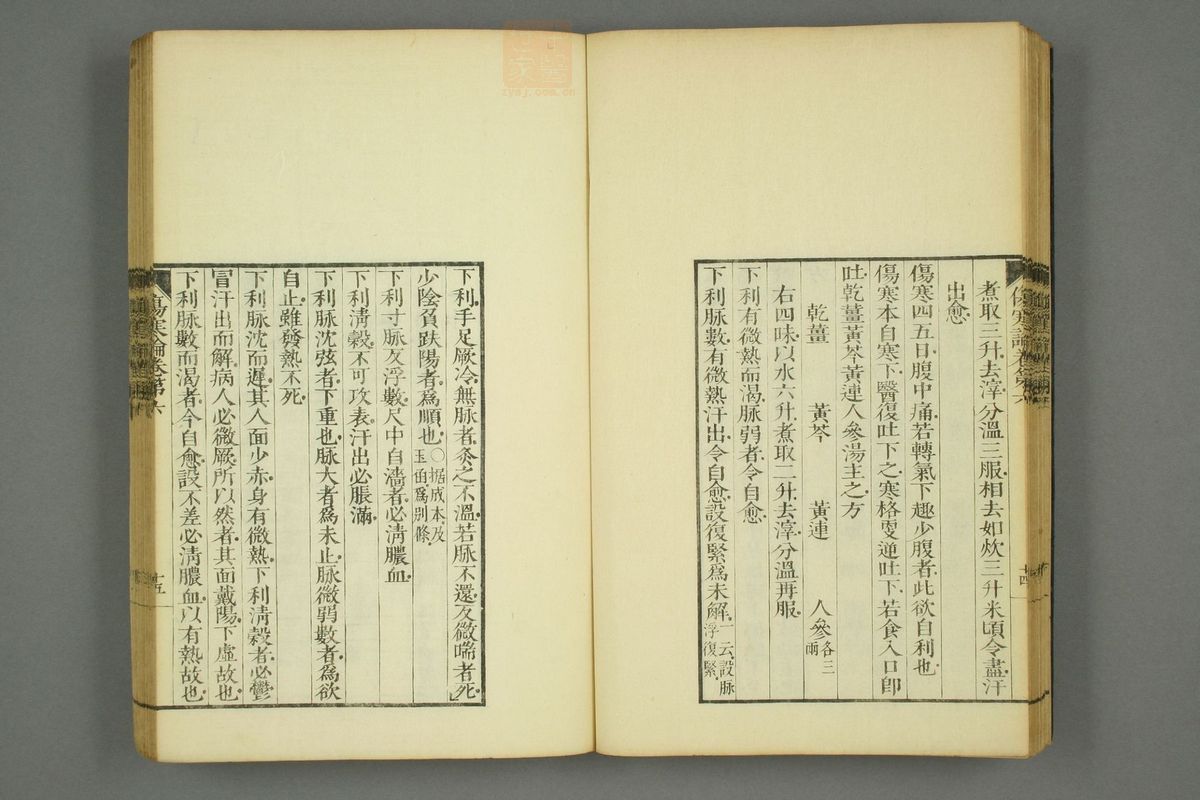 煮取三升去滓分溫三服相去如炊三升米頃令盡汗
出愈
傷寒四五日腹中痛若轉氣下趣少腹者此欲自利也
傷寒本自寒下醫復吐下之寒格更逆吐下若食入口卽
吐乾薑黃芩黃連人參湯主之方
乾薑 黃芩 黃連 人參各三兩
右四味以水六升煮取二升去滓分溫再服
下利有微熱而渴脉弱者令自愈
下利脉數有微熱汗出令自愈設復緊爲未解一云設脉浮復緊
傷寒論卷第六
十四
下利手足厥冷無脉者灸之不溫若脉不還反微喘者死
少陰負趺陽者爲順也○据成本及玉函爲別條
下利寸脉反浮數尺中自濇者必淸膿血
下利淸穀不可攻表汗出必脹滿
下利脉沈弦者下重也脉大者爲未止脉微弱數者爲欲
自止雖發熱不死
下利脉沈而遲其人面少赤身有微熱下利淸穀者必鬱
冒汗出而解病人必微厥所以然者其面戴陽下虛故也
下利脉數而渴者令自愈設不差必淸膿血以有熱故也
傷寒論卷第六
十五
zysj.com.cn